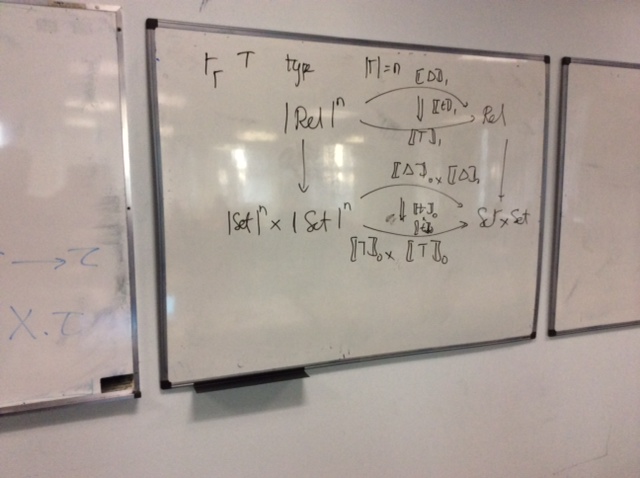 ⊢_Γ T type |Γ|=n
⟦Δ⟧₁
|Rel|ⁿ ⇓ ⟦t⟧₁ Rel
⟦T⟧₁
⟦Δ⟧₀ × ⟦Δ⟧₀
|Set|ⁿ × |Set|ⁿ ⇓ ⟦t⟧₀ Set × Set
⟦T⟧₀ × ⟦T⟧₀
τ ←
τ.X